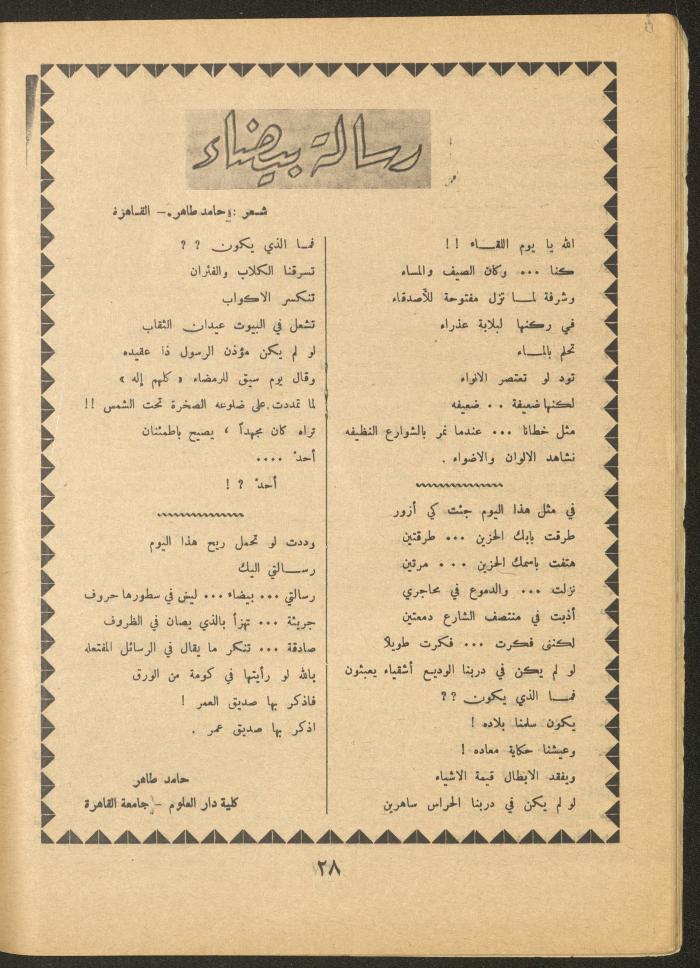 رسالة بيضاء
شعر : حامد طاهر - القاهرة
الله يا يوم اللقاء !!
كنا ... وكان الصيف والمساء
وشرفة لما تزل مفتوحة للأصدقاء
في ركنها لبلابة عذراء
تحلم بالماء
تود لو تعتصر الانواء
لكنها ضعيفة .. ضعيفه
مثل خطانا ... عندما نمر بالشوارع النظيفه
نشاهد الالوان والاضواء .
في مثل هذا اليوم جئت كي أزور
طرقت بابك الحزين ... طرقتين
هتفت باسمك الحزين ... مرتين
نزلت ... والدموع في محاجري
أذبت في منتصف الشارع دمعتين
لكنني فكرت ... فكرت طويلاً
لو لم يكن في دربنا الوديع أشقياء يعبثون
فما الذي يكون ؟؟
يكون سلمنا بلاده !
وعيشنا حكاية معاده !
ويفقد الابطال قيمة الاشياء
لو لم يكن في دربنا الحراس ساهرين
فما الذي يكون ؟؟
تسرقنا الكلاب والفئران
تنكسر الاكواب
تشعل في البيوت عيدان الثقاب
لو لم يكن مؤذن الرسول ذا عقيده
وقال يوم سيق للرمضاء « كلهم إله »
لما تمددت على ضلوعه الصخرة تحت الشمس !!
تراه كان مجهداً ، يصيح باطمئنان
أحدٌ ....
أحدٌ ؟ !
وددت لو تحمل ريح هذا اليوم
رسالتي اليك
رسالتي ... بيضاء ... ليس في سطورها حروف
جريئة ... تهزأ بالذي يصان في الظروف
صادقة ... تنكر ما يقال في الرسائل المفتعله
بالله لو رأيتها في كومة من الورق
فاذكر بها صديق العمر !
اذكر بها صديق عمر .
حامد طاهر
كلية دار العلوم - جامعة القاهرة
٢٨